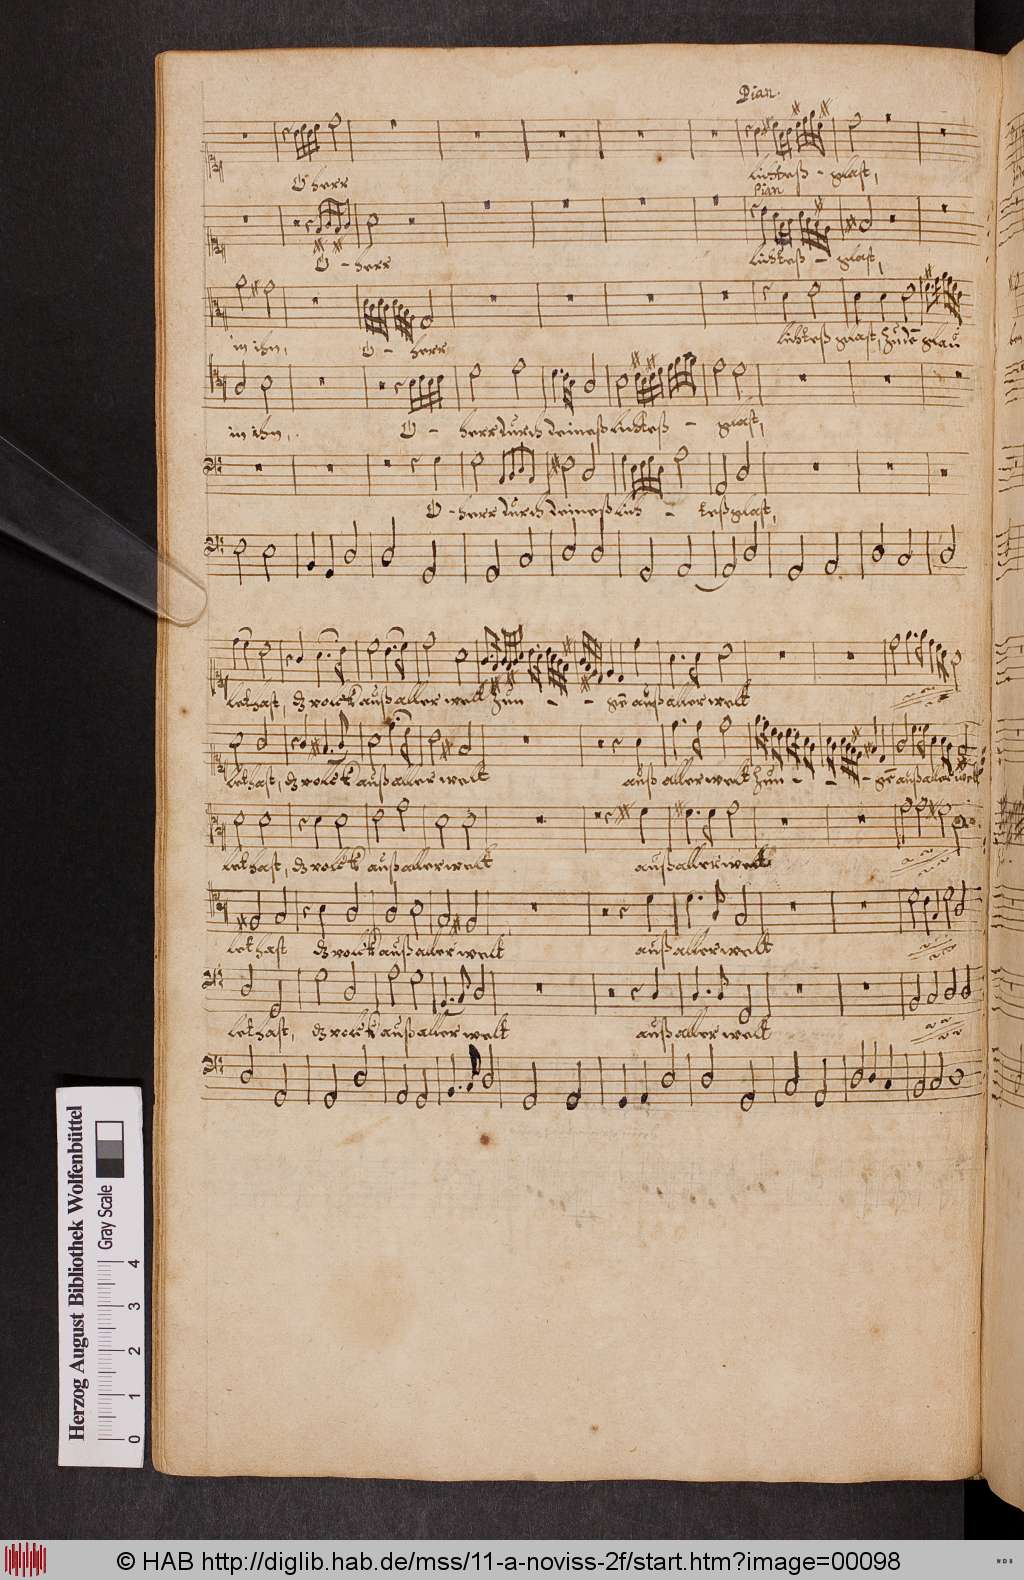 Pian.
O herr
lichteß - glast,
Pian
O - herr
lichteß - glast,
in ihn,
O - herr
lichteß glast, zu dē glau
in ihn,
O - herr durch deineß lichteß - glast,
O - herr durch deineß lich - teß glast,
let hast, dz volck auß aller welt zun - - gē auß aller welt
let hast, dz volck auß aller welt
auß aller welt zun - - - gē auß aller welt
let hast, dz volck auß aller welt
auß aller welt
let hast dz volck auß aller welt
auß aller welt
let hast, dz volck auß aller welt
auß aller welt
Herzog August Bibliothek Wolfenbüttel
Gray Scale
0 1 2 3 4
© HAB http://diglib.hab.de/mss/11-a-noviss-2f/start.htm?image=00098